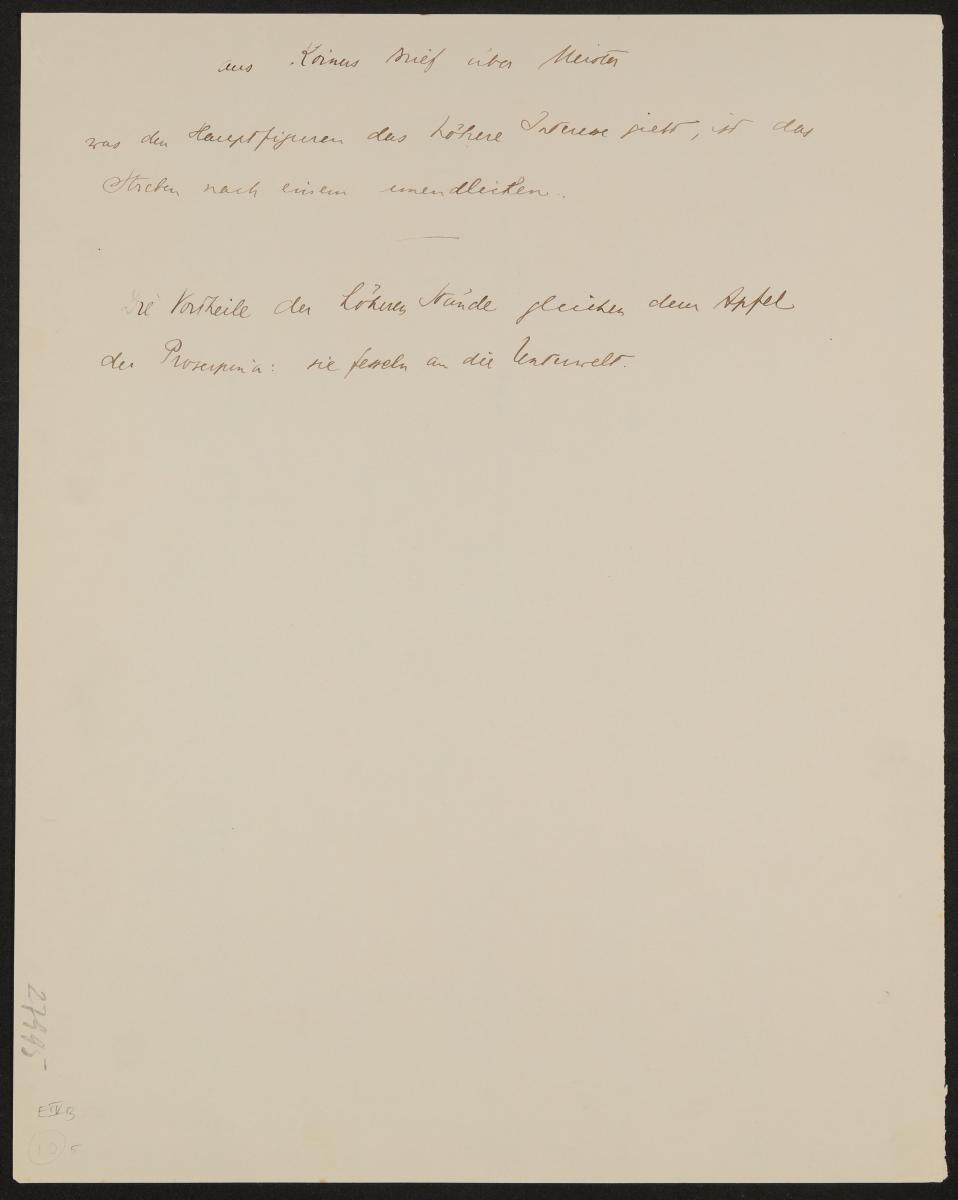 aus Körners Brief über Meister
was den Hauptfiguren das höhere Interesse giebt, ist das
Streben nach einem unendlichen.
Die Vortheile der höheren Stände gleichen dem Apfel
der Proserpina: sie fesseln an die Unterwelt.
27445
E IV B
10